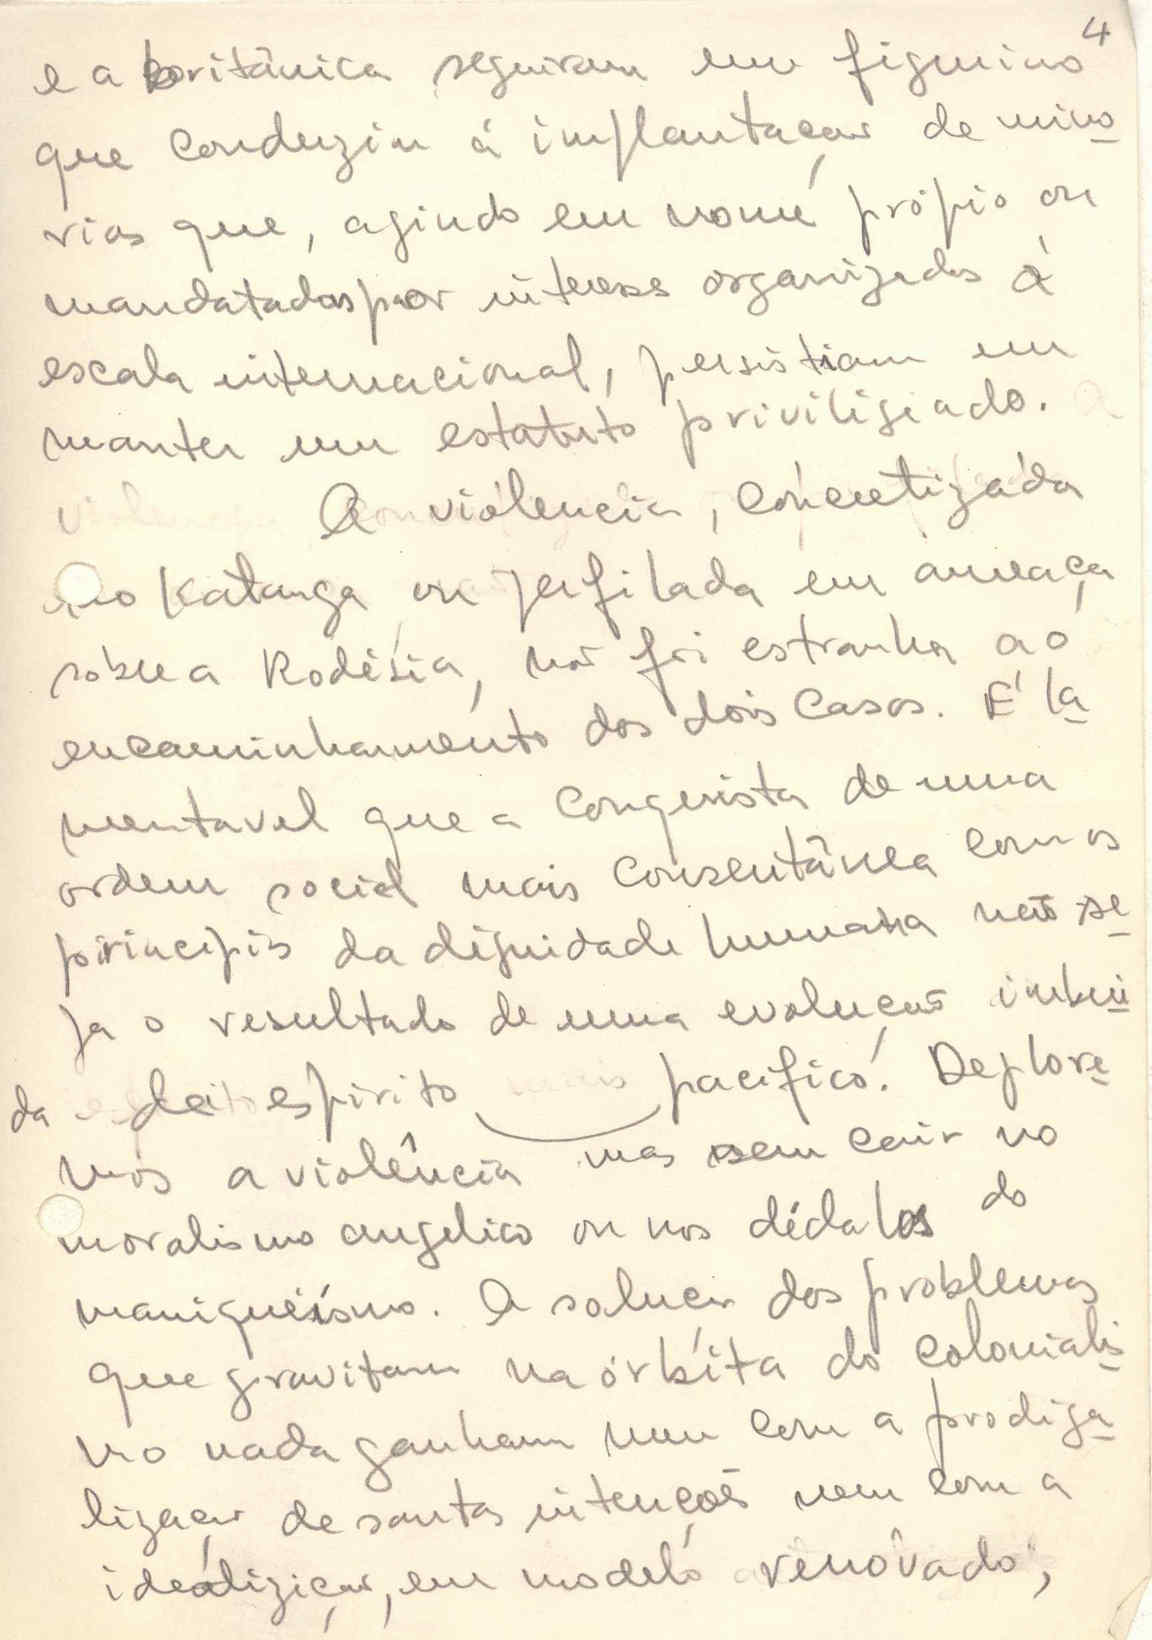 4
e a britânica seguiram um figurino
que conduziu á implantação de mino
rias que, agindo em nome própio ou
mandatadas por interesses organizados à
escala internacional, persistiam em
manter um estatuto priviligiado.
A violencia, concretizada
no Katanga ou perfilada em ameaça
sobre a Rodésia, não foi estranha ao
encaminhamento dos dois casos. É la
mentavel que a conquista de uma
ordem social mais consentânea com os
principios da dignidade humana não se
ja o resultado de uma evolução imbuí
da de espirito pacifico. Deplore
mos a violência mas sem cair no
moralismo angelico ou nos dédalos do
maniqueísmo. A solução dos problemas
que gravitam na órbita do colonialis
mo nada ganham nem com a prodiga
lização de santas intenções nem com a
idealizição, em modelo renovado,